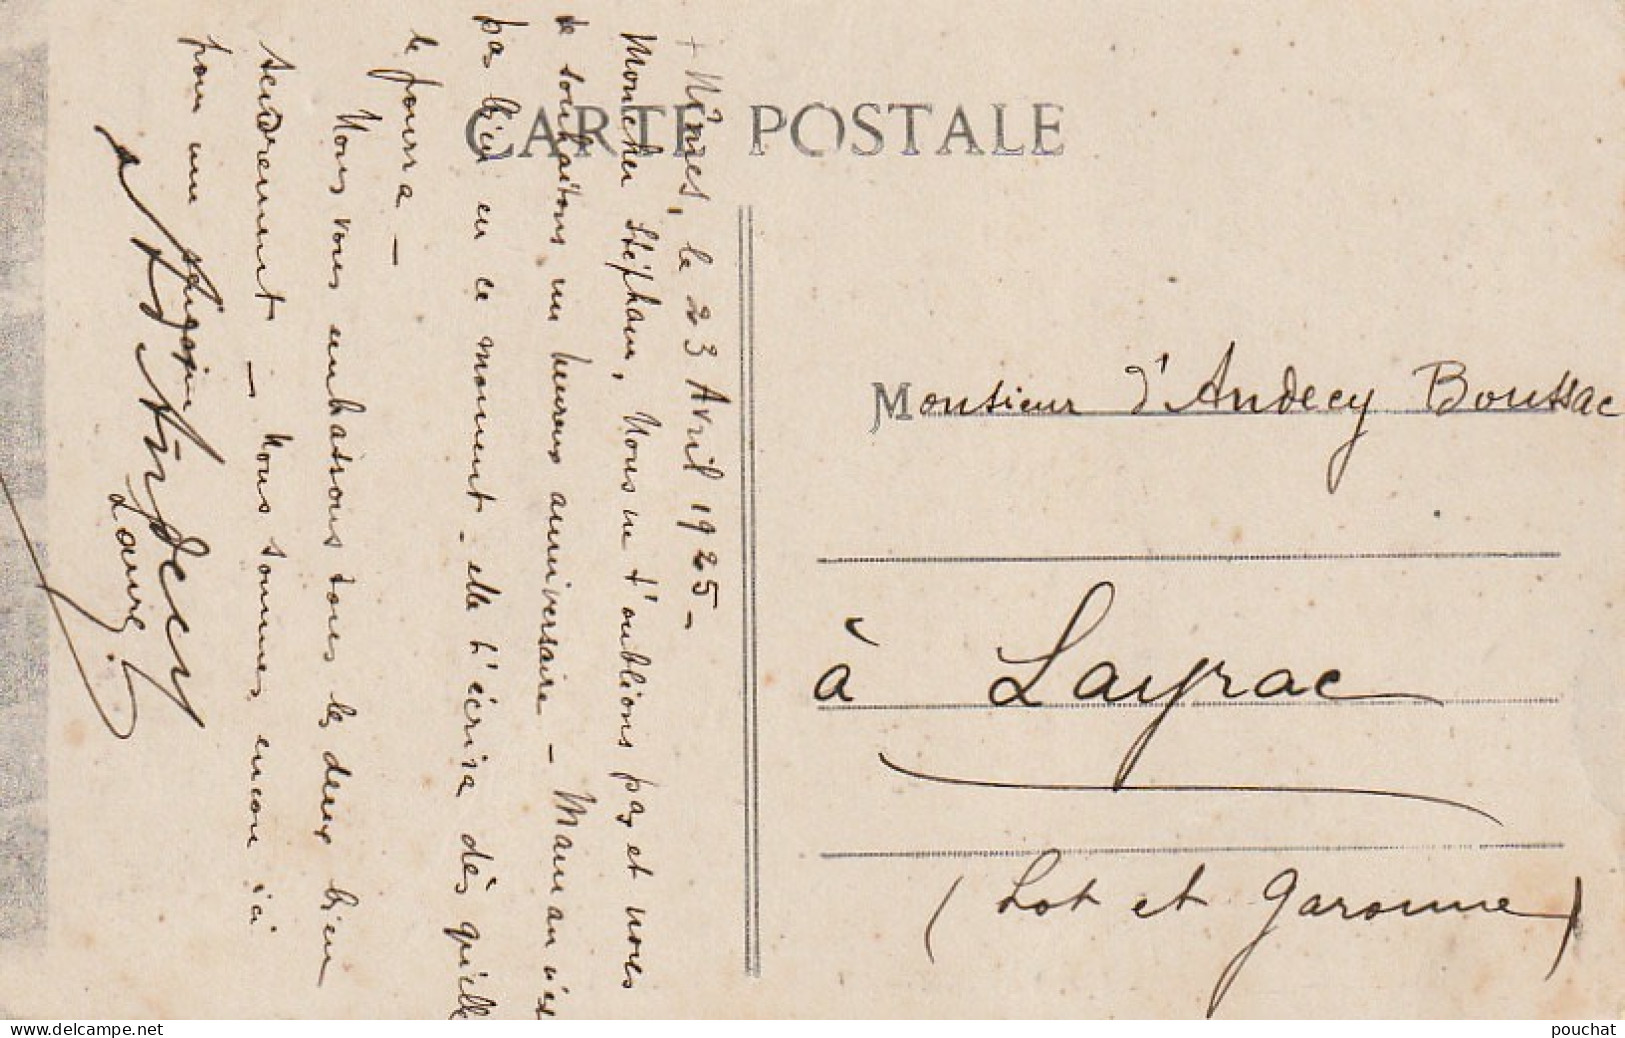 CARTE POSTALE
+ Nîmes, le 23 Avril 1925 -
Mon cher Stéphane, Nous ne t'oublions pas et nous
te souhaitons un heureux anniversaire - Maman n'est
pas bien en ce moment - elle t'écrira dès qu'elle
le pourra -
Nous vous embrassons tous les deux bien
tendrement - Nous sommes encore ici
pour une
d'Andecy
Laure
Monsieur d'Andecy Boussac
à Layrac
(Lot et Garonne)
www.delcampe.net
pouchat